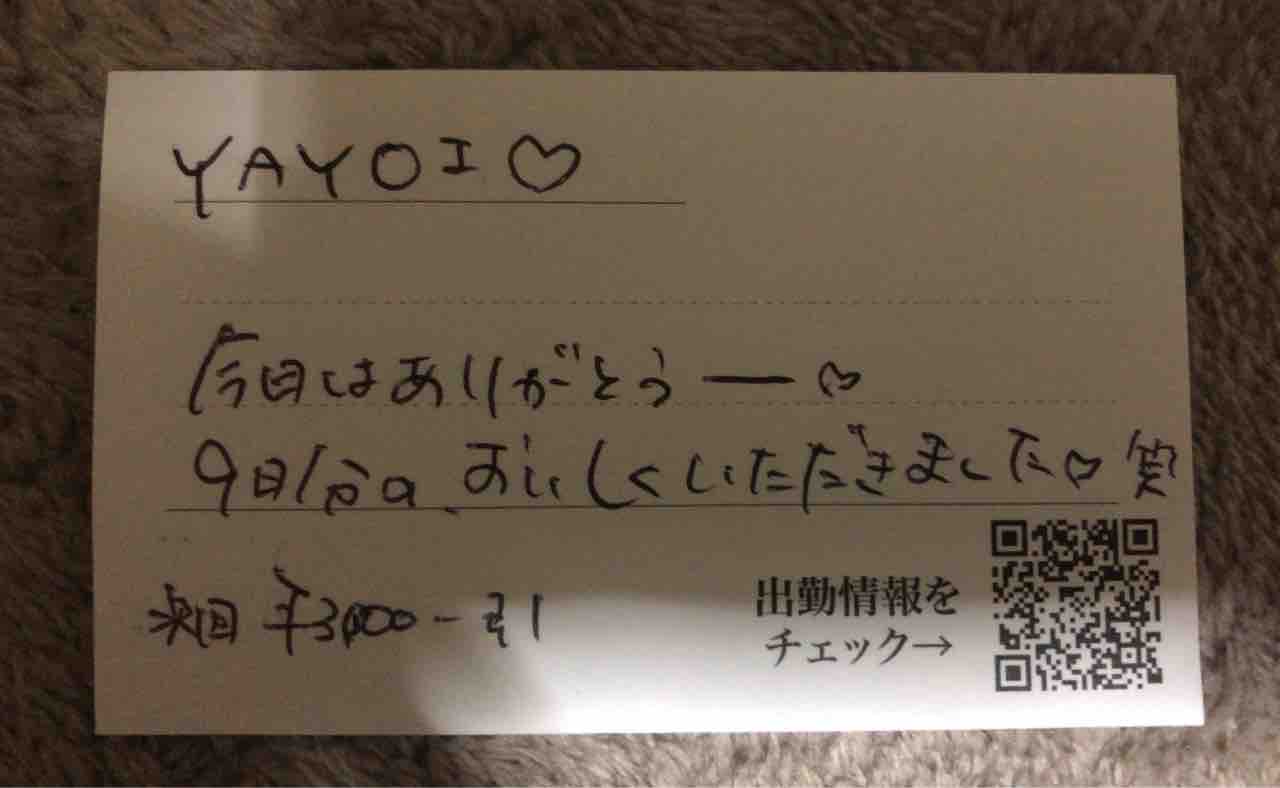 YAYOI♡
今日はありがとうー♡
9日分の、おいしくいただきました♡笑
次回 ¥3000-引
出勤情報を
チェック→